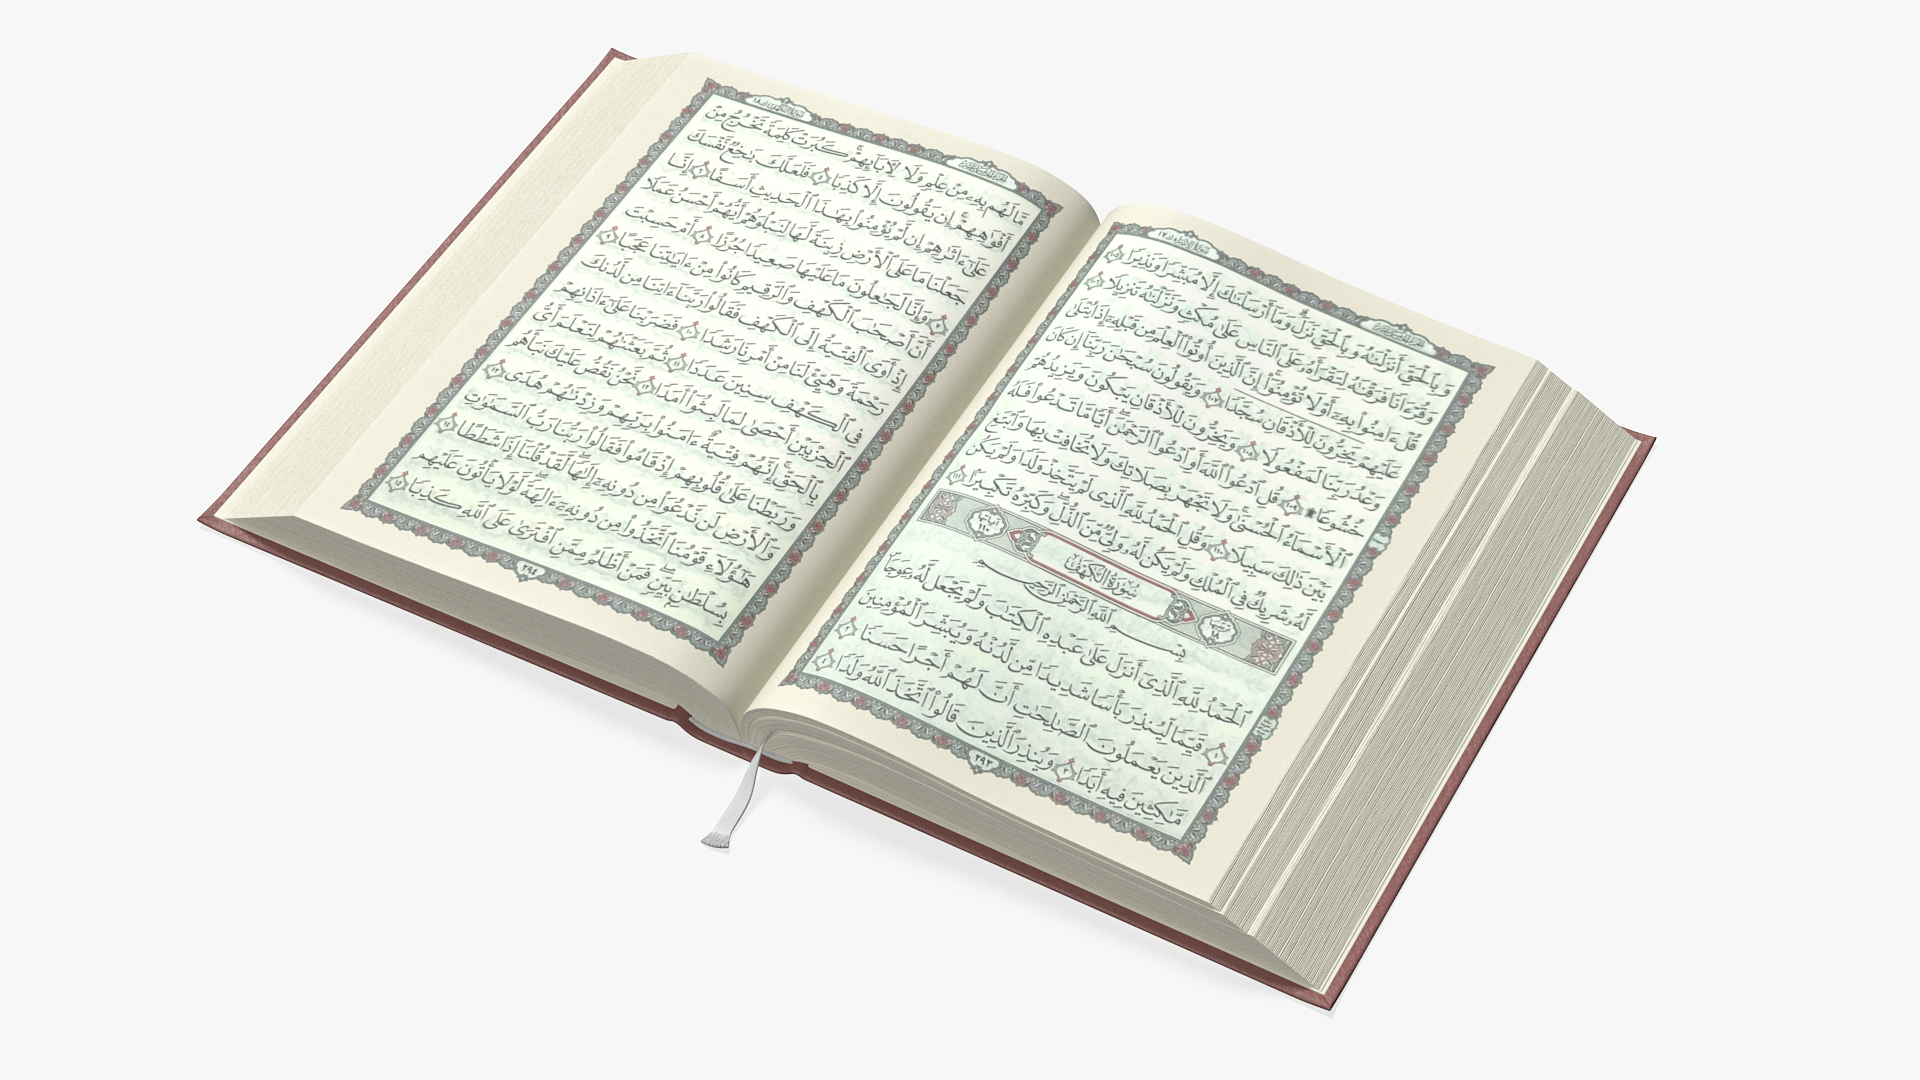 الجزء الخامس عشر سورة الإسراء ١٧
وَبِٱلْحَقِّ أَنزَلْنَٰهُ وَبِٱلْحَقِّ نَزَلَ وَمَآ أَرْسَلْنَٰكَ إِلَّا مُبَشِّرًا وَنَذِيرًا ١٠٥
وَقُرْءَانًا فَرَقْنَٰهُ لِتَقْرَأَهُۥ عَلَى ٱلنَّاسِ عَلَىٰ مُكْثٍ وَنَزَّلْنَٰهُ تَنزِيلًا ١٠٦
قُلْ ءَامِنُوا۟ بِهِۦٓ أَوْ لَا تُؤْمِنُوٓا۟ إِنَّ ٱلَّذِينَ أُوتُوا۟ ٱلْعِلْمَ مِن قَبْلِهِۦٓ إِذَا يُتْلَىٰ
عَلَيْهِمْ يَخِرُّونَ لِلْأَذْقَانِ سُجَّدًا ١٠٧ وَيَقُولُونَ سُبْحَٰنَ رَبِّنَآ إِن كَانَ
وَعْدُ رَبِّنَا لَمَفْعُولًا ١٠٨ وَيَخِرُّونَ لِلْأَذْقَانِ يَبْكُونَ وَيَزِيدُهُمْ
خُشُوعًا ۩ ١٠٩ قُلِ ٱدْعُوا۟ ٱللَّهَ أَوِ ٱدْعُوا۟ ٱلرَّحْمَٰنَ أَيًّا مَّا تَدْعُوا۟ فَلَهُ
ٱلْأَسْمَآءُ ٱلْحُسْنَىٰ وَلَا تَجْهَرْ بِصَلَاتِكَ وَلَا تُخَافِتْ بِهَا وَٱبْتَغِ
بَيْنَ ذَٰلِكَ سَبِيلًا ١١٠ وَقُلِ ٱلْحَمْدُ لِلَّهِ ٱلَّذِى لَمْ يَتَّخِذْ وَلَدًا وَلَمْ يَكُن
لَّهُۥ شَرِيكٌ فِى ٱلْمُلْكِ وَلَمْ يَكُن لَّهُۥ وَلِىٌّ مِّنَ ٱلذُّلِّ وَكَبِّرْهُ تَكْبِيرًۢا ١١١
ترتيبها ١٨ سُورَةُ الكَهْفِ آياتها ١١٠
بِسْمِ ٱللَّهِ ٱلرَّحْمَٰنِ ٱلرَّحِيمِ
ٱلْحَمْدُ لِلَّهِ ٱلَّذِىٓ أَنزَلَ عَلَىٰ عَبْدِهِ ٱلْكِتَٰبَ وَلَمْ يَجْعَل لَّهُۥ عِوَجَا
١ قَيِّمًا لِّيُنذِرَ بَأْسًا شَدِيدًا مِّن لَّدُنْهُ وَيُبَشِّرَ ٱلْمُؤْمِنِينَ
ٱلَّذِينَ يَعْمَلُونَ ٱلصَّٰلِحَٰتِ أَنَّ لَهُمْ أَجْرًا حَسَنًا ٢
مَّٰكِثِينَ فِيهِ أَبَدًا ٣ وَيُنذِرَ ٱلَّذِينَ قَالُوا۟ ٱتَّخَذَ ٱللَّهُ وَلَدًا ٤
٢٩٣
الجزء الخامس عشر سورة الكهف ١٨
مَّا لَهُم بِهِۦ مِنْ عِلْمٍ وَلَا لِءَابَآئِهِمْ كَبُرَتْ كَلِمَةً تَخْرُجُ مِنْ
أَفْوَٰهِهِمْ إِن يَقُولُونَ إِلَّا كَذِبًا ٥ فَلَعَلَّكَ بَٰخِعٌ نَّفْسَكَ
عَلَىٰٓ ءَاثَٰرِهِمْ إِن لَّمْ يُؤْمِنُوا۟ بِهَٰذَا ٱلْحَدِيثِ أَسَفًا ٦ إِنَّا
جَعَلْنَا مَا عَلَى ٱلْأَرْضِ زِينَةً لَّهَا لِنَبْلُوَهُمْ أَيُّهُمْ أَحْسَنُ عَمَلًا
٧ وَإِنَّا لَجَٰعِلُونَ مَا عَلَيْهَا صَعِيدًا جُرُزًا ٨ أَمْ حَسِبْتَ
أَنَّ أَصْحَٰبَ ٱلْكَهْفِ وَٱلرَّقِيمِ كَانُوا۟ مِنْ ءَايَٰتِنَا عَجَبًا ٩
إِذْ أَوَى ٱلْفِتْيَةُ إِلَى ٱلْكَهْفِ فَقَالُوا۟ رَبَّنَآ ءَاتِنَا مِن لَّدُنكَ
رَحْمَةً وَهَيِّئْ لَنَا مِنْ أَمْرِنَا رَشَدًا ١٠ فَضَرَبْنَا عَلَىٰٓ ءَاذَانِهِمْ
فِى ٱلْكَهْفِ سِنِينَ عَدَدًا ١١ ثُمَّ بَعَثْنَٰهُمْ لِنَعْلَمَ أَىُّ
ٱلْحِزْبَيْنِ أَحْصَىٰ لِمَا لَبِثُوٓا۟ أَمَدًا ١٢ نَّحْنُ نَقُصُّ عَلَيْكَ نَبَأَهُم
بِٱلْحَقِّ إِنَّهُمْ فِتْيَةٌ ءَامَنُوا۟ بِرَبِّهِمْ وَزِدْنَٰهُمْ هُدًى ١٣
وَرَبَطْنَا عَلَىٰ قُلُوبِهِمْ إِذْ قَامُوا۟ فَقَالُوا۟ رَبُّنَا رَبُّ ٱلسَّمَٰوَٰتِ
وَٱلْأَرْضِ لَن نَّدْعُوَا۟ مِن دُونِهِۦٓ إِلَٰهًا لَّقَدْ قُلْنَآ إِذًا شَطَطًا ١٤
هَٰٓؤُلَآءِ قَوْمُنَا ٱتَّخَذُوا۟ مِن دُونِهِۦٓ ءَالِهَةً لَّوْلَا يَأْتُونَ عَلَيْهِم
بِسُلْطَٰنٍۭ بَيِّنٍ فَمَنْ أَظْلَمُ مِمَّنِ ٱفْتَرَىٰ عَلَى ٱللَّهِ كَذِبًا ١٥
٢٩٤